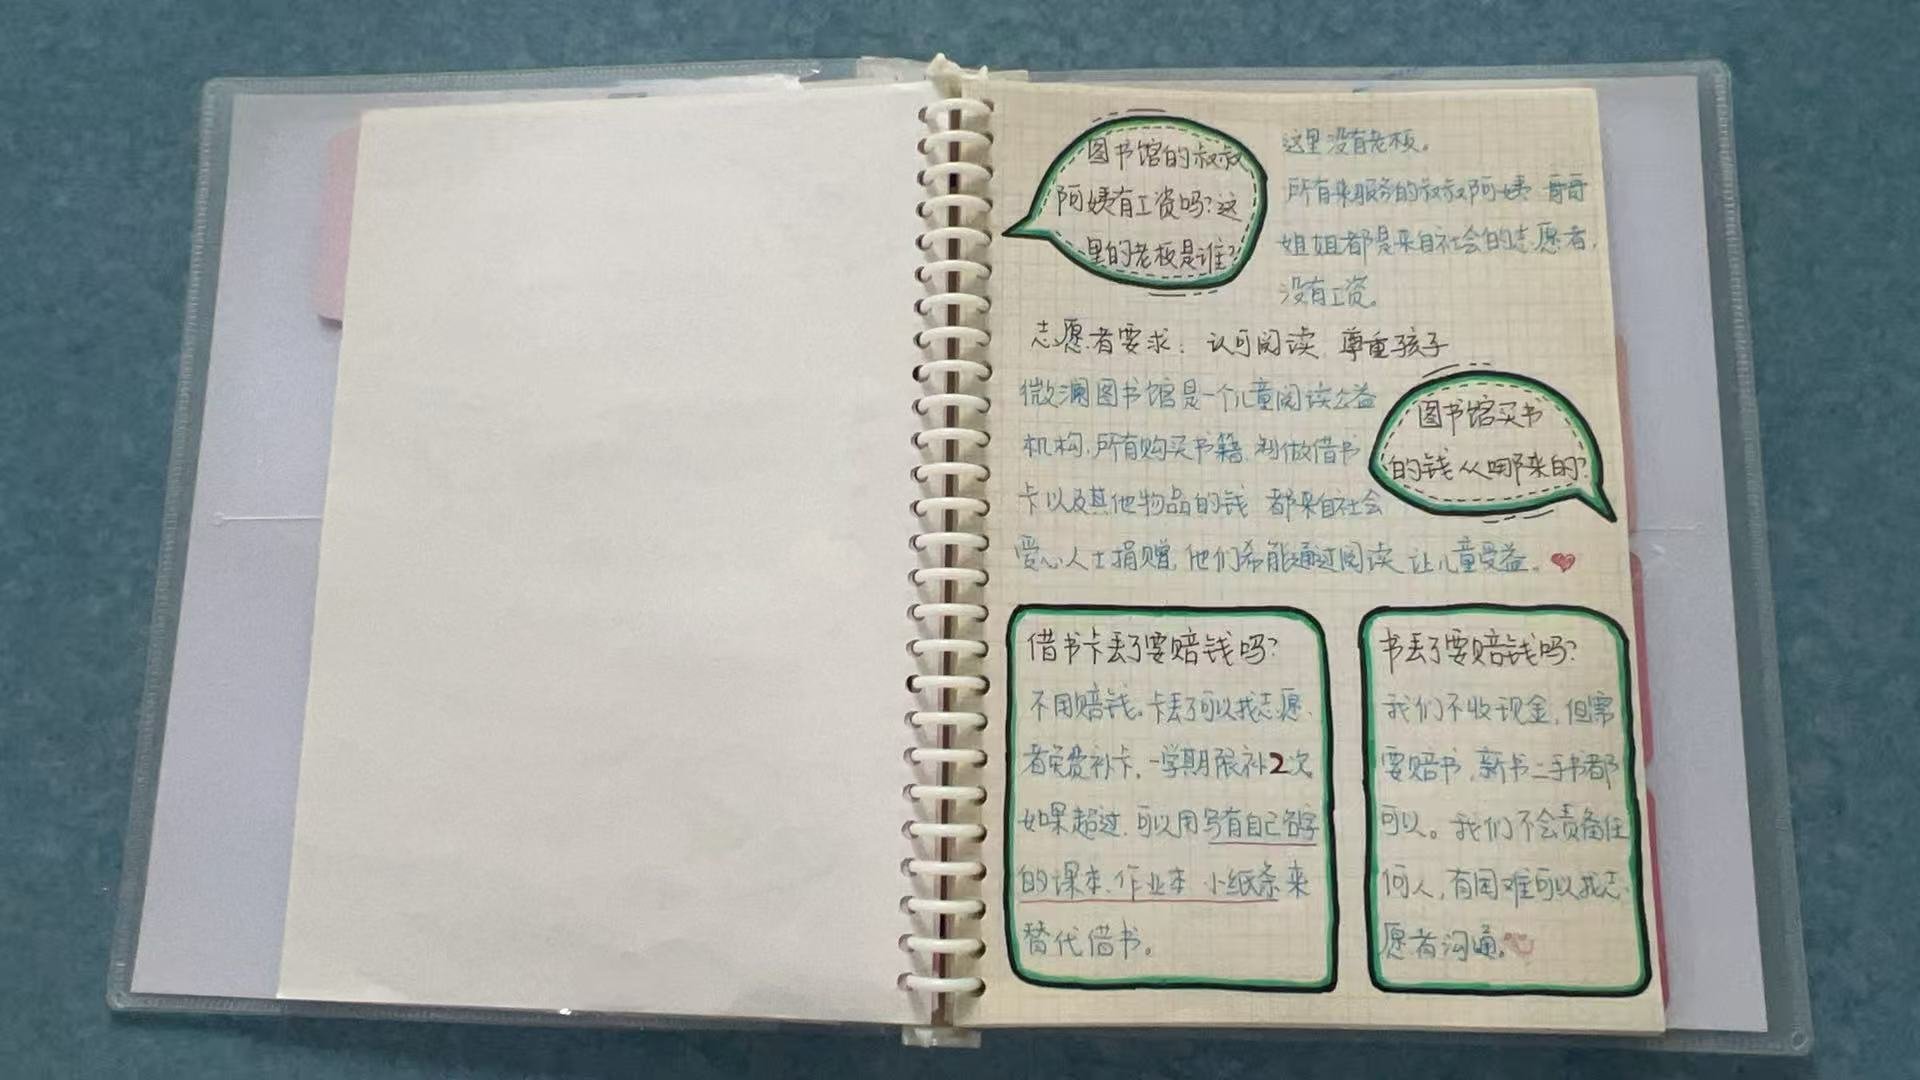 图书馆的叔叔
阿姨有工资吗?这
里的老板是谁?
这里没有老板。
所有来服务的叔叔阿姨 哥哥
姐姐都是来自社会的志愿者,
没有工资。
志愿者要求: 认可阅读、尊重孩子
微澜图书馆是一个儿童阅读公益
机构,所有购买书籍、制做借书
卡以及其他物品的钱 都来自社会
爱心人士捐赠,他们希能通过阅读 让儿童受益。
图书馆买书
的钱从哪来的?
借书卡丢了要赔钱吗?
不用赔钱。卡丢了可以找志愿
者免费补卡,一学期限补2次
如果超过,可以用写有自己名字
的课本、作业本 小纸条来
替代借书。
书丢了要赔钱吗?
我们不收现金,但需
要赔书,新书二手书都
可以。我们不会责备任
何人,有困难可以找志
愿者沟通。